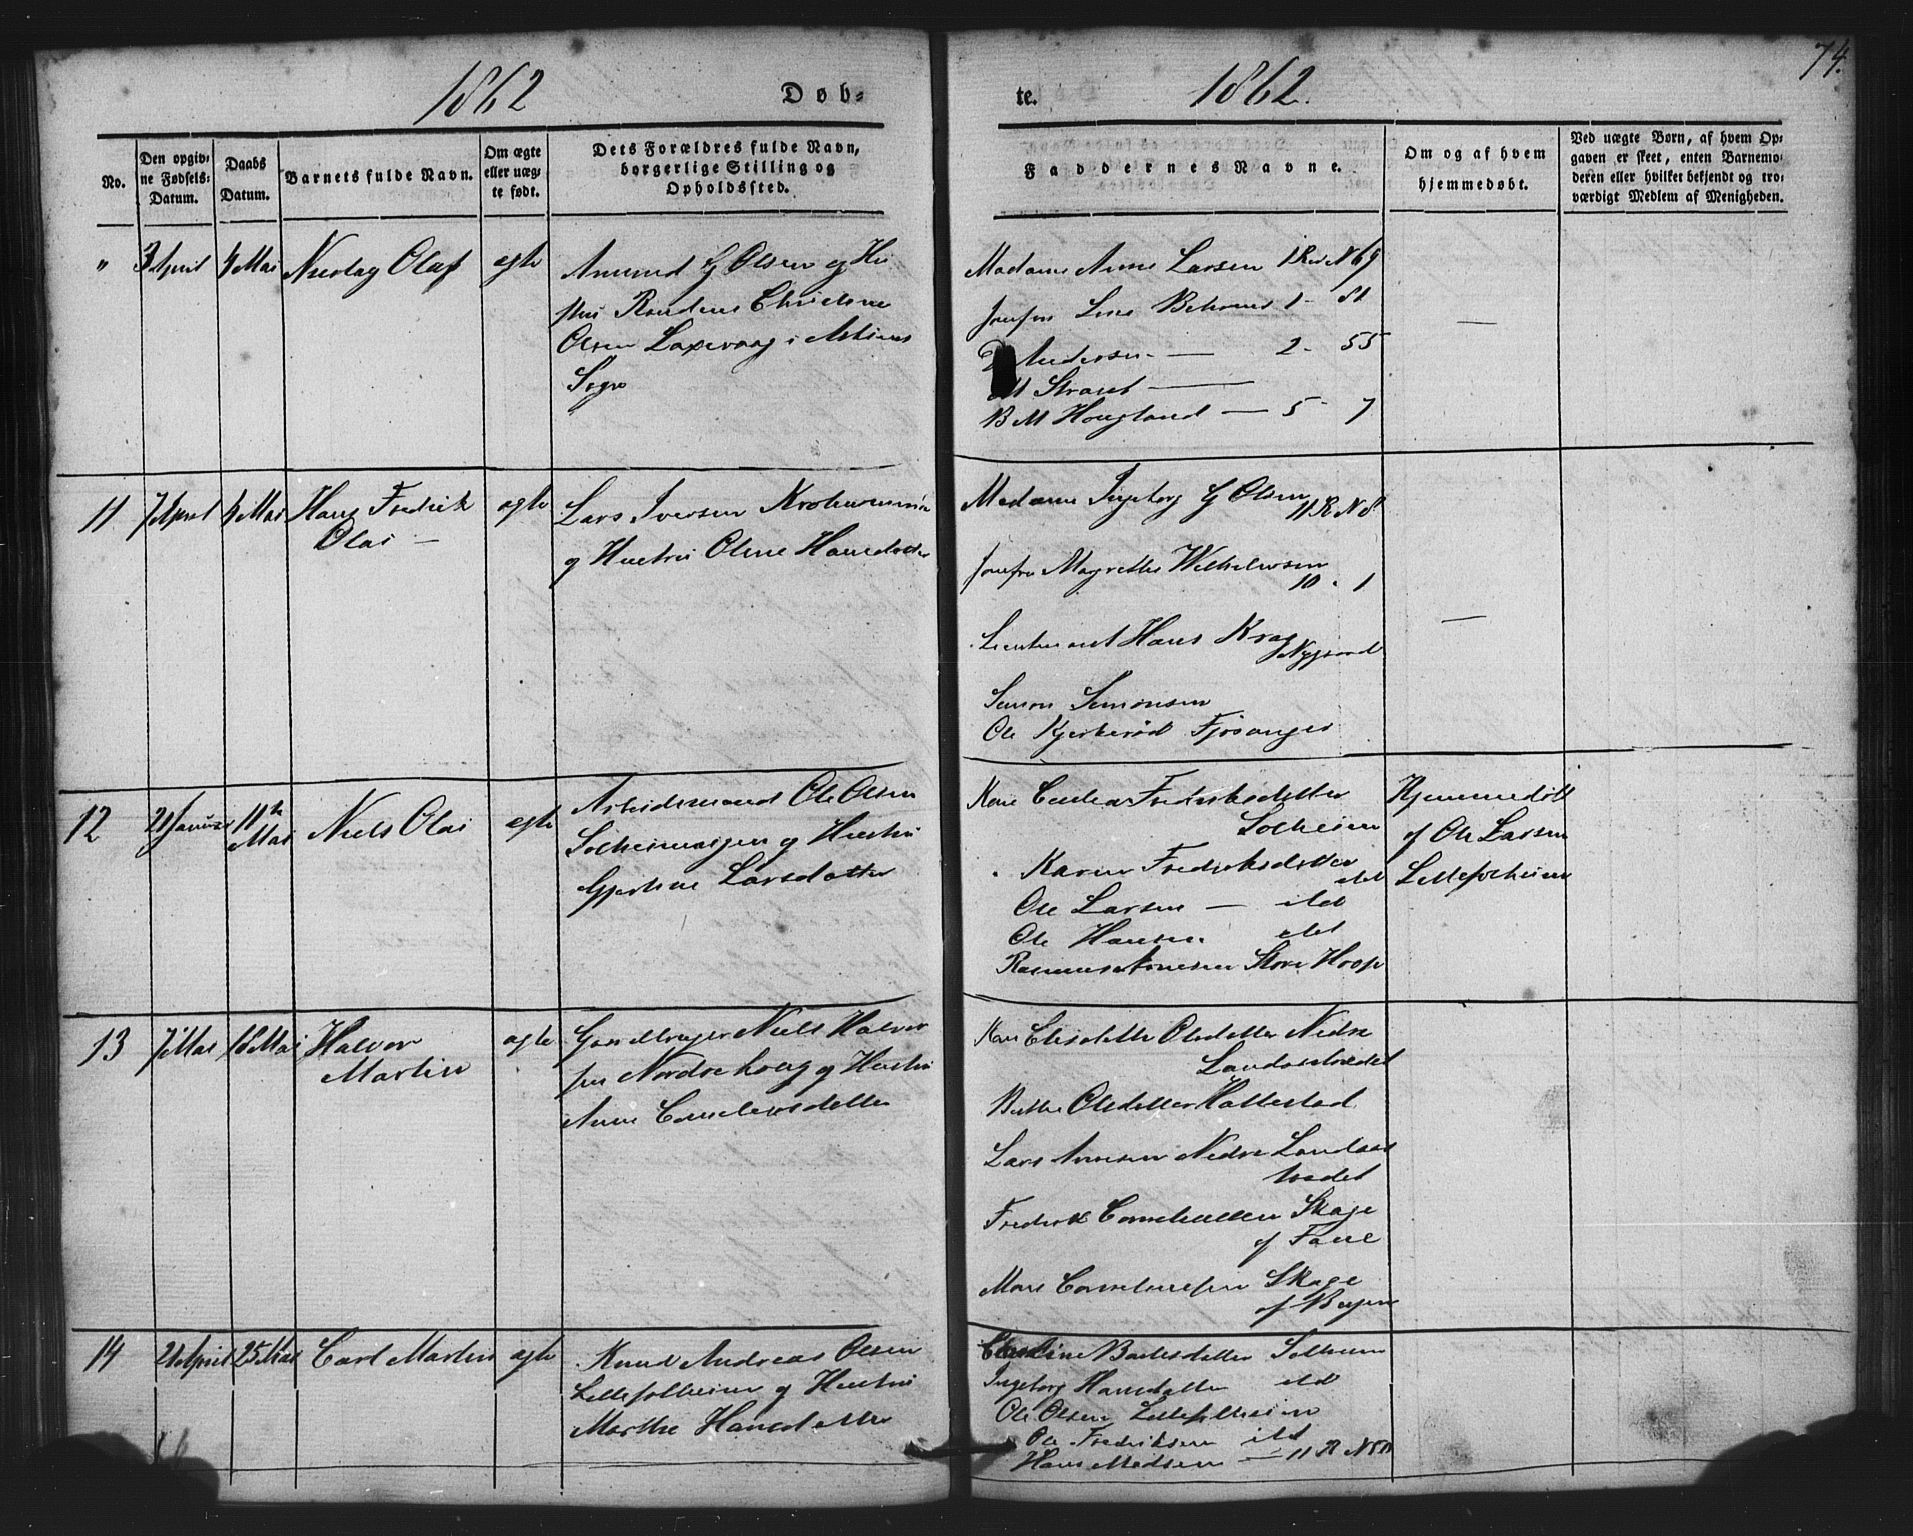 74.
1862
Døb=
te.
1862.
No.
Den opgiv=
ne Fødsels=
Datum.
Daabs
Datum.
Barnets fulde Navn.
Om ægte
eller uæg=
te født.
Dets Forældres fulde Navn,
borgerlige Stilling og
Opholdssted.
Faddernes Navne.
Om og af hvem
hjemmedøbt.
Ved uægte Børn, af hvem Op=
gaven er skeet, enten Barnemo=
deren eller hvilket bekjendt og tro=
værdigt Medlem af Menigheden.
"
3 April
4 Mai
Nicolay Olaf
ægte
Amund G Olsen og Hu
stru Christine
Olsen Laxevaag i Askøens
Sogn
Madame Anne Larsen 1 R N 69
Jomfru Line 1 - 81
Andersen - 2 - 55
M
B M Hougland - 5 - 7
11
7 April
4 Mai
Hans Fredrik
Olai -
ægte
Lars Iversen
og Hustru Oline Hansdatter
Madame Ingeborg G Olsen
11 R N 8
Jomfru Magrethe Wilhelmsen
10 - 1
Lieutenant Hans Krag
Nygaard
Simon Simonsen
Ole Kjerkerød Fjøsanger
12
21 Januar
11te
Mai
Niels Olai
ægte
Arbeidsmand Ole Olsen
Solheimsvigen og Hustru
Gjertine Larsdatter
Kone Fredriksdatter
Solheim
Karen Fredriksdatter
itd
Ole Larsen - itd
Ole Hansen itd
Rasmus Arnesen Store Hoop
Hjemmedøbt
af Ole Larsen
Lillesolheim
13
7 Mai
18 Mai
Halvor
Martin
ægte
Gaardbruger Niels Halvor
sen Nordre Houg og Hustru
Anne Corneliusdatter
Kone Elisabeth Olsdatter Nedre
Landaastrædet
Berthe Olsdatter Hattestad
Lars Arnesen Nedre Landaas
trædet
Fredrik Skage
af Fane
Mons Corneliussen Skage
af Bergen
14
21 April
25 Mai
Carl Martin
ægte
Knud Andreas Olsen
Lillesolheim og Hustru
Marthe Hansdatter
Bertesdatter Solheim
Ingeborg Hansdatter itd
Ole Olsen Lillesolheim
Ole Fredriksen itd
Hans Madsen - 11 R N